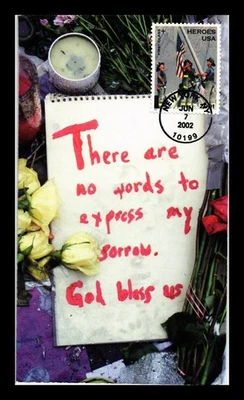 HEROES
USA
NEW YORK, NY
JUN
7
2002
10199
There are
no words to
express my
sorrow.
God bless us